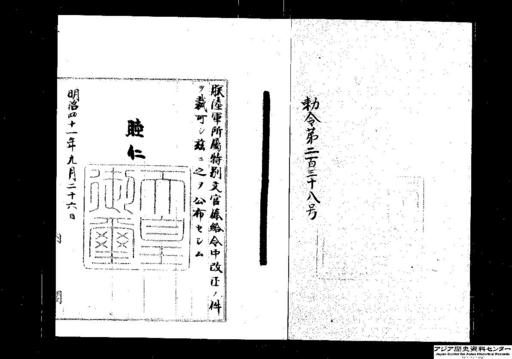 勅令第二百三十八号
朕陸軍所属特別文官俸給令中改正ノ件
ヲ裁可シ茲ニ之ヲ公布セシム
睦仁
天皇御璽
明治四十一年九月二十六日
内閣
アジア歴史資料センター
Japan Center for Asian Historical Records